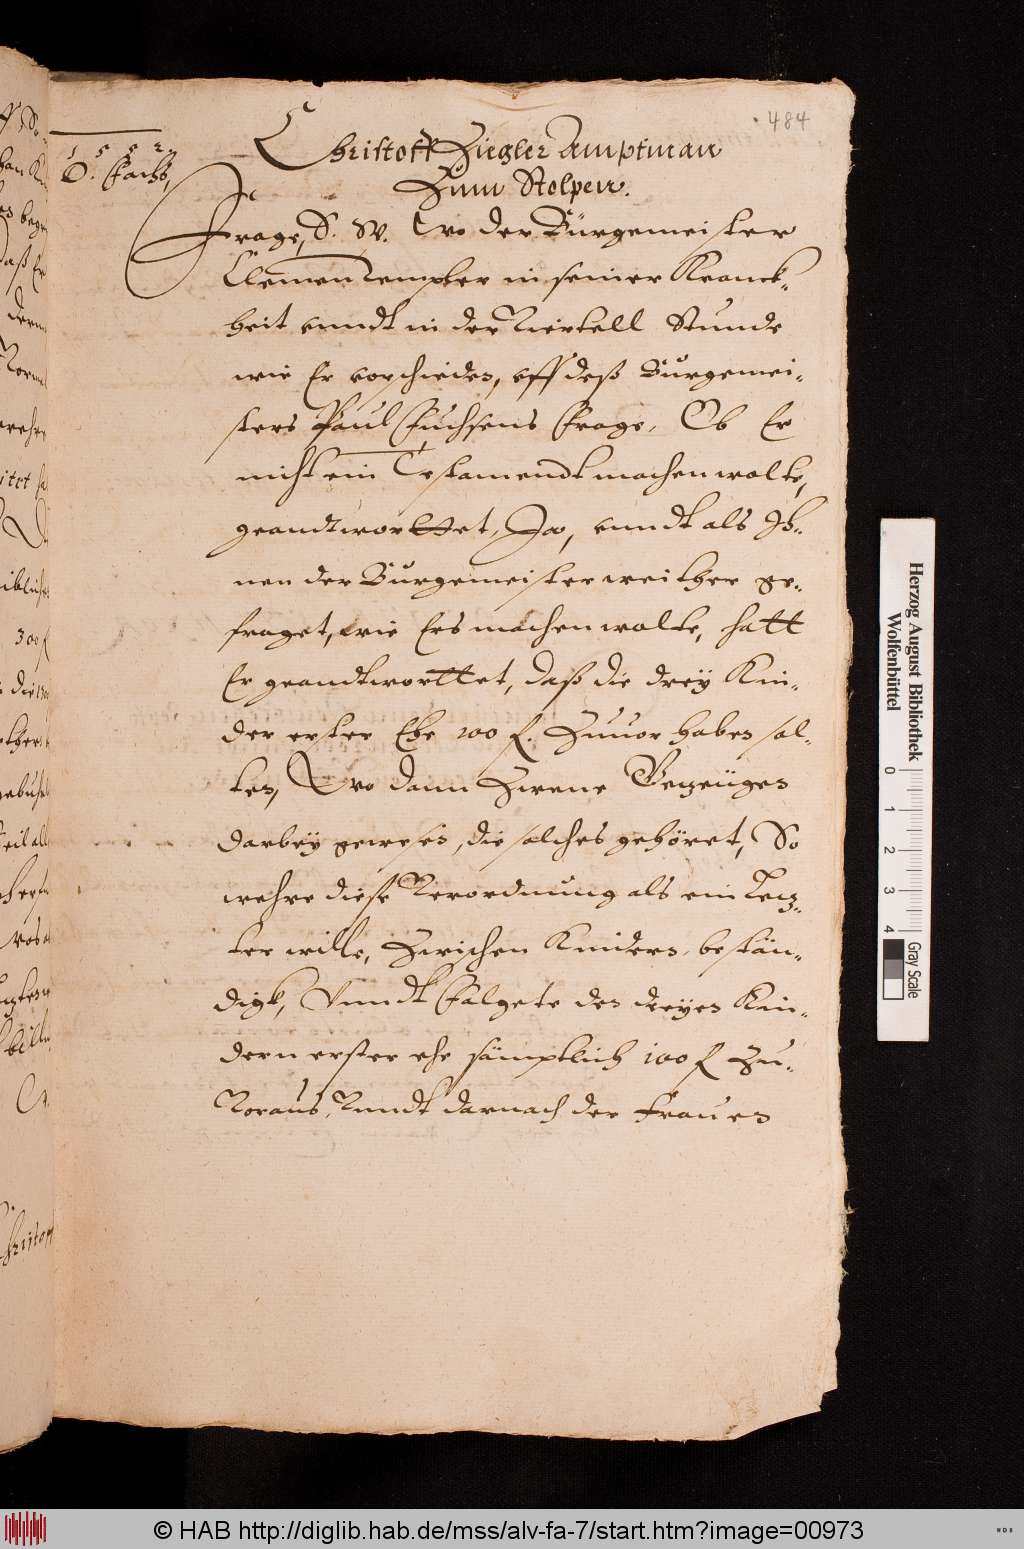 484
1 5 8 2
D. Fachs,
Christoff Ziegler Amptman
Zum Stolpen.
Frage, S. W. Wo der Bürgemeister
Clemen Templer in seiner Kranck-
heit vnndt in der Viertell Stunde
wie Er vorschieden, vff deß Burgemei-
sters Paul Fuchsens Frage, Ob Er
nicht ein Testamendt machen wolte,
geandtworttet, Ja, vnndt als Ih-
nen der Burgemeister weither ge-
fraget, wie Ers machen wolte, hatt
Er geandtworttet, daß die drey Kin-
der erster Ehe 100 f. Zuuor haben sol-
ten, Wo dann Zwene Gezeügen
darbey gewesen, die solches gehöret, So
wehre diese Verordnung als ein Letz-
ter wille, Zwischen Kindern, bestän-
digk, Vnndt Folgete den dreyen Kin-
dern erster ehe sämptlich 100 f Zu-
Voraus, Vnndt darnach der Frauen
Herzog August Bibliothek
Wolfenbüttel
0 1 2 3 4
Gray Scale
© HAB http://diglib.hab.de/mss/alv-fa-7/start.htm?image=00973